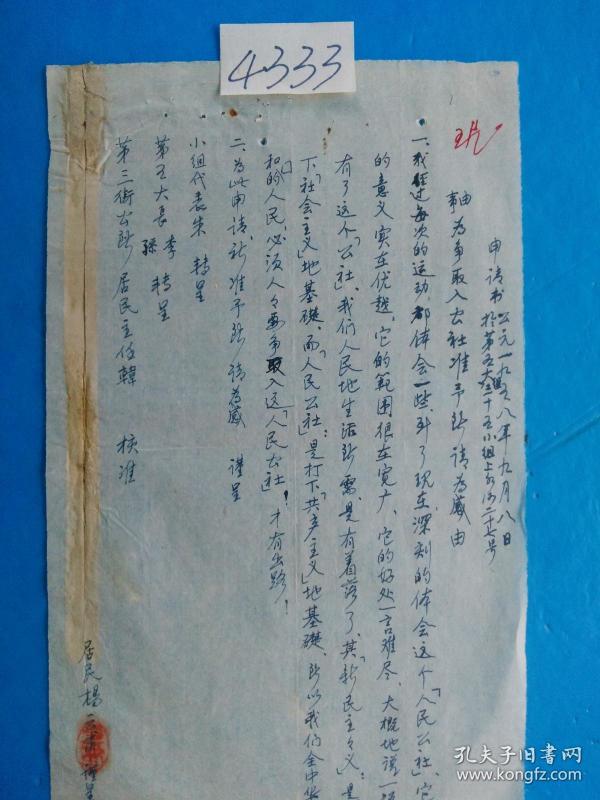 4333
申请书
公元一九五八年九月八日
於第五大组十五小组上
二十七号
事由 为争取入公社准予所请为荷由
一、我经过每次的运动,都体会一些,到了现在,深刻的体会这个「人民公社」、它
的意义实在优越,它的範围很在宽广、它的好处一言难尽、大概地谨一
有了这个「公社」、我们人民地生活所需、是有着落了、其「新民主々义」:是
下「社会主义」地基礎、而「人民公社」:是打下「共产主义」地基礎、所以我们全中华
和的人民,必须人々要争取入这「人民公社」!才有出路!
二、为此申请,祈准予所请为荷 谨呈
小组代表朱 转呈
第五大长 李 孫 转呈
第三街公所 居民主任韓 核准
居民楊
孔夫子旧书网
www.kongfz.com